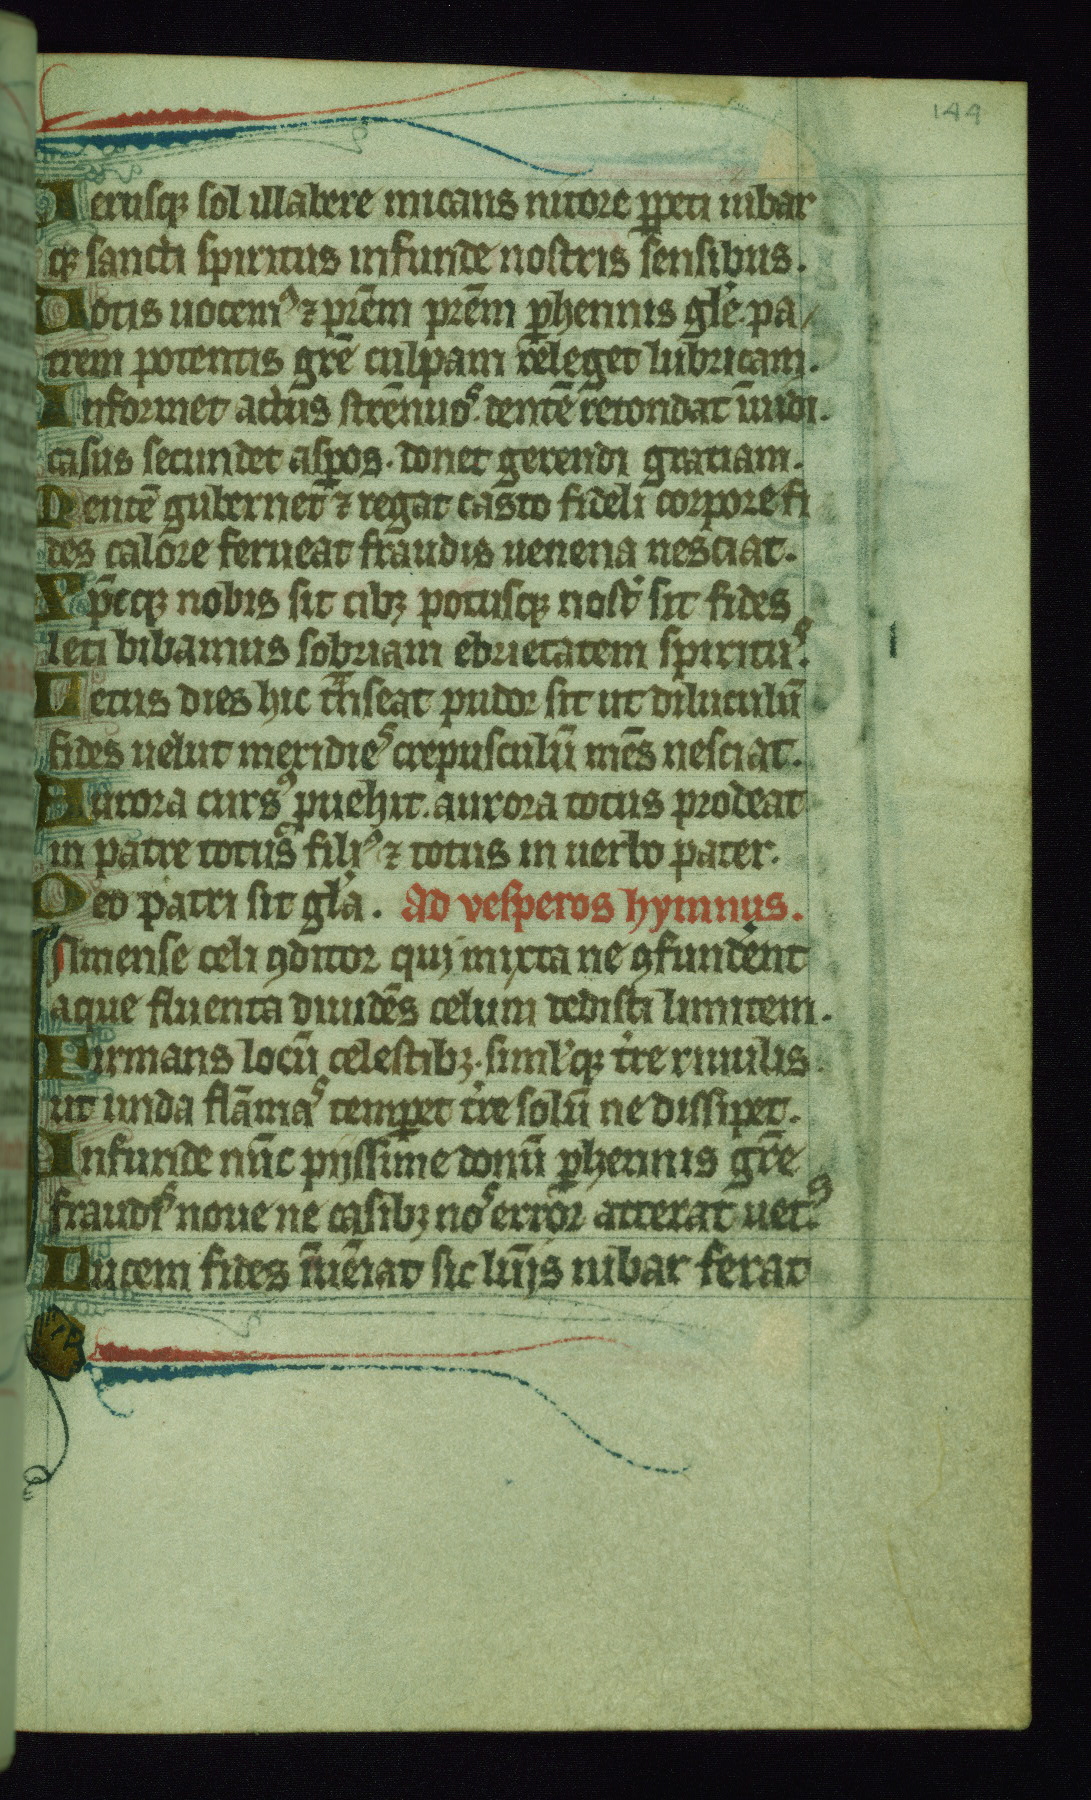 144
Uerusq; sol illabere micans nitore ꝑpeti iubar
q; sancti spiritus infunde nostris sensibus.
Uotis uocemꝰ ⁊ pr̄em pr̄em ꝑhennis gl̄e. pa/
trem potentis gr̄e culpam releget lubricam.
Informet actus strēnuoˢ. dentē retondat īuidi.
casus secundet asꝑos. donet gerendi gratiam.
Mentē gubernet ⁊ regat casto fideli corpore fi
des calore ferueat fraudis uenena nesciat.
Xp̄ecq; nobis sit cibꝫ potusq; nost̉ sit fides
leti bibamus sobriam ebrietatem spirituˢ.
Letus dies hic trͣnseat pudor sit ut diluculū
fides uelut meridieˢ crepusculū mēs nesciat.
Aurora cursꝰ ꝓuehit. aurora totus prodeat
in patre totus filiꝰ ⁊ totus in uerbo pater.
Deo patri sit gl̄a. Ad vesperos hymnus.
Inmense celi ꝯditor qui mixta ne ꝯfunderent
aque fluenta diuidēs celum dedisti limitem.
Firmans locū celestibꝫ. simul̉q; tr̄e riuulis
ut unda flāmaˢ temꝑet tr̄e solū ne dissipet.
Infunde nūc pijssime donū ꝑhennis gr̄e
fraudiˢ noue ne casibꝫ noˢ error atterat uetˢ.
Lucem fides īuēiat sic lūīs iubar ferat